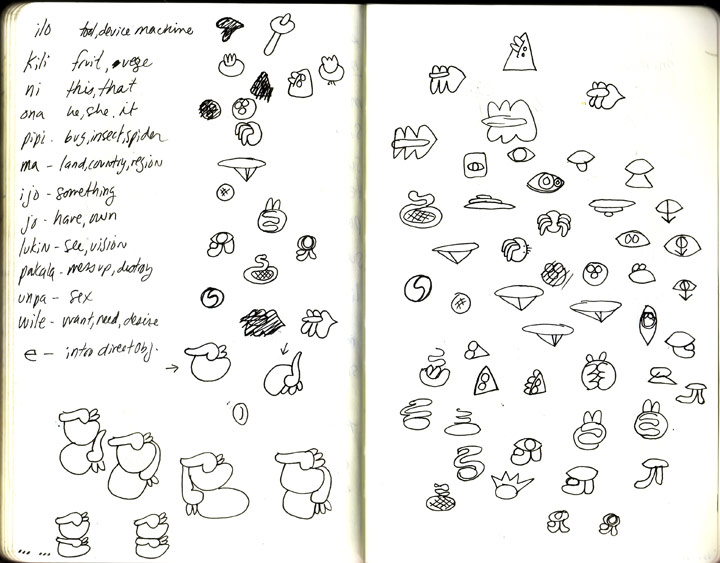 ilo tool, device machine
kili fruit, vege
ni this, that
ona he, she, it
pipi - bug, insect, spider
ma - land, country, region
ijo - something
jo - have, own
lukin - see, vision
pakala - mess up, destroy
unpa - sex
wile - want, need, desire
e - intro direct obj.